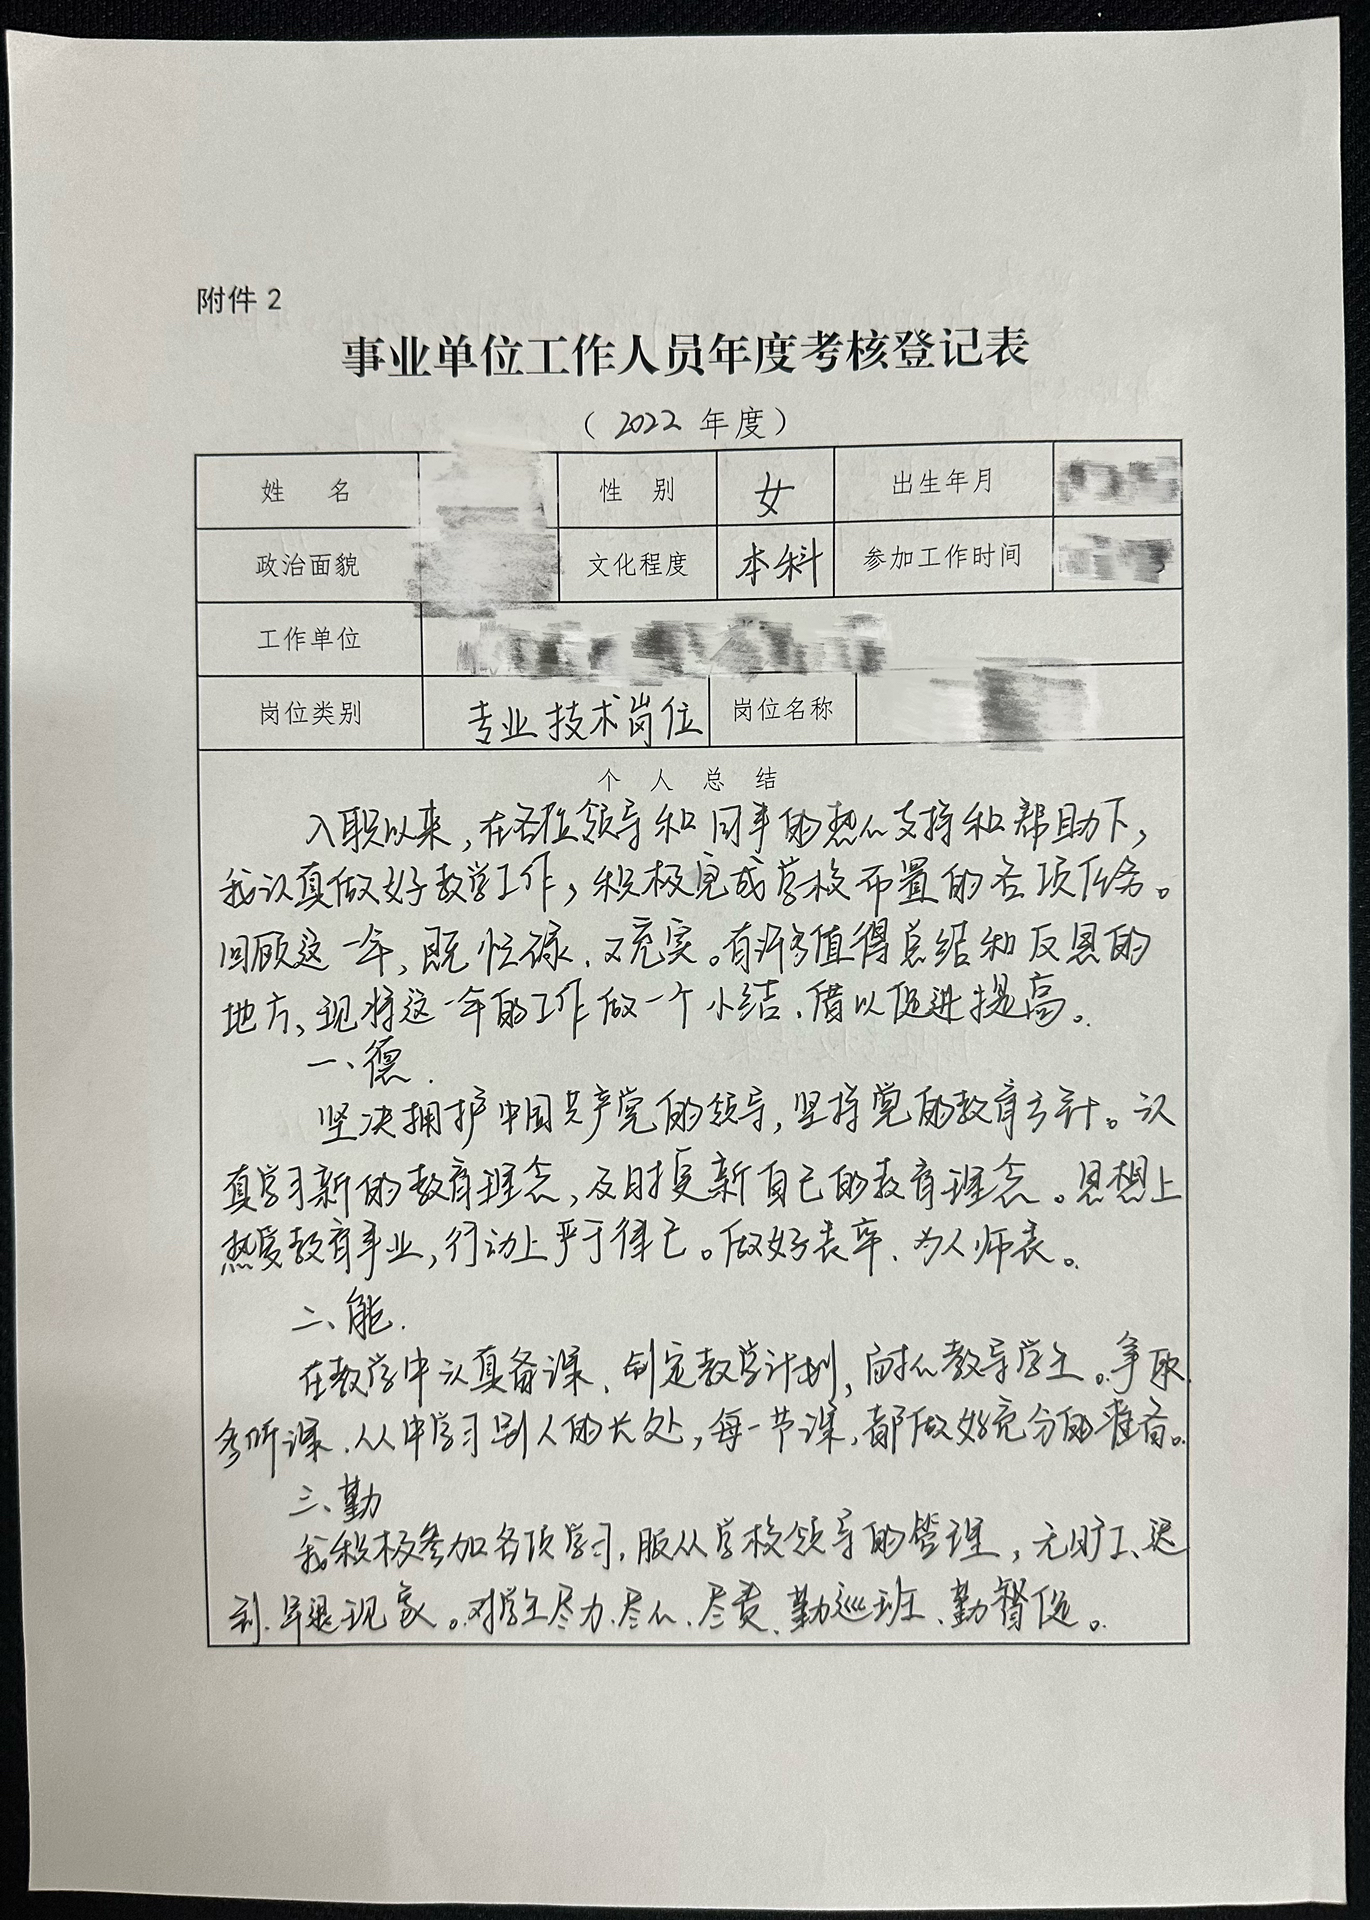 附件 2
事业单位工作人员年度考核登记表
（2022 年度）
姓 名 性 别 女 出生年月
政治面貌 文化程度 本科 参加工作时间
工作单位
岗位类别 专业技术岗位 岗位名称
个 人 总 结
入职以来，在各位领导和同事的热心支持和帮助下，
我认真做好教学工作，积极完成学校布置的各项任务。
回顾这一年，既忙碌、又充实。有许多值得总结和反思的
地方，现将这一年的工作做一个小结、借以促进提高。
一、德.
坚决拥护中国共产党的领导，坚持党的教育方针。认
真学习新的教育理念，及时更新自己的教育理念。思想上
热爱教育事业，行动上严于律己。做好表率、为人师表。
二、能.
在教学中认真备课、制定教学计划，耐心教导学生。争取
多听课、从中学习别人的长处，每一节课，都做好充分的准备。
三、勤
我积极参加各项学习，服从学校领导的管理，无旷工、迟
到、早退现象。对学生尽力、尽心、尽责、勤巡班、勤督促。